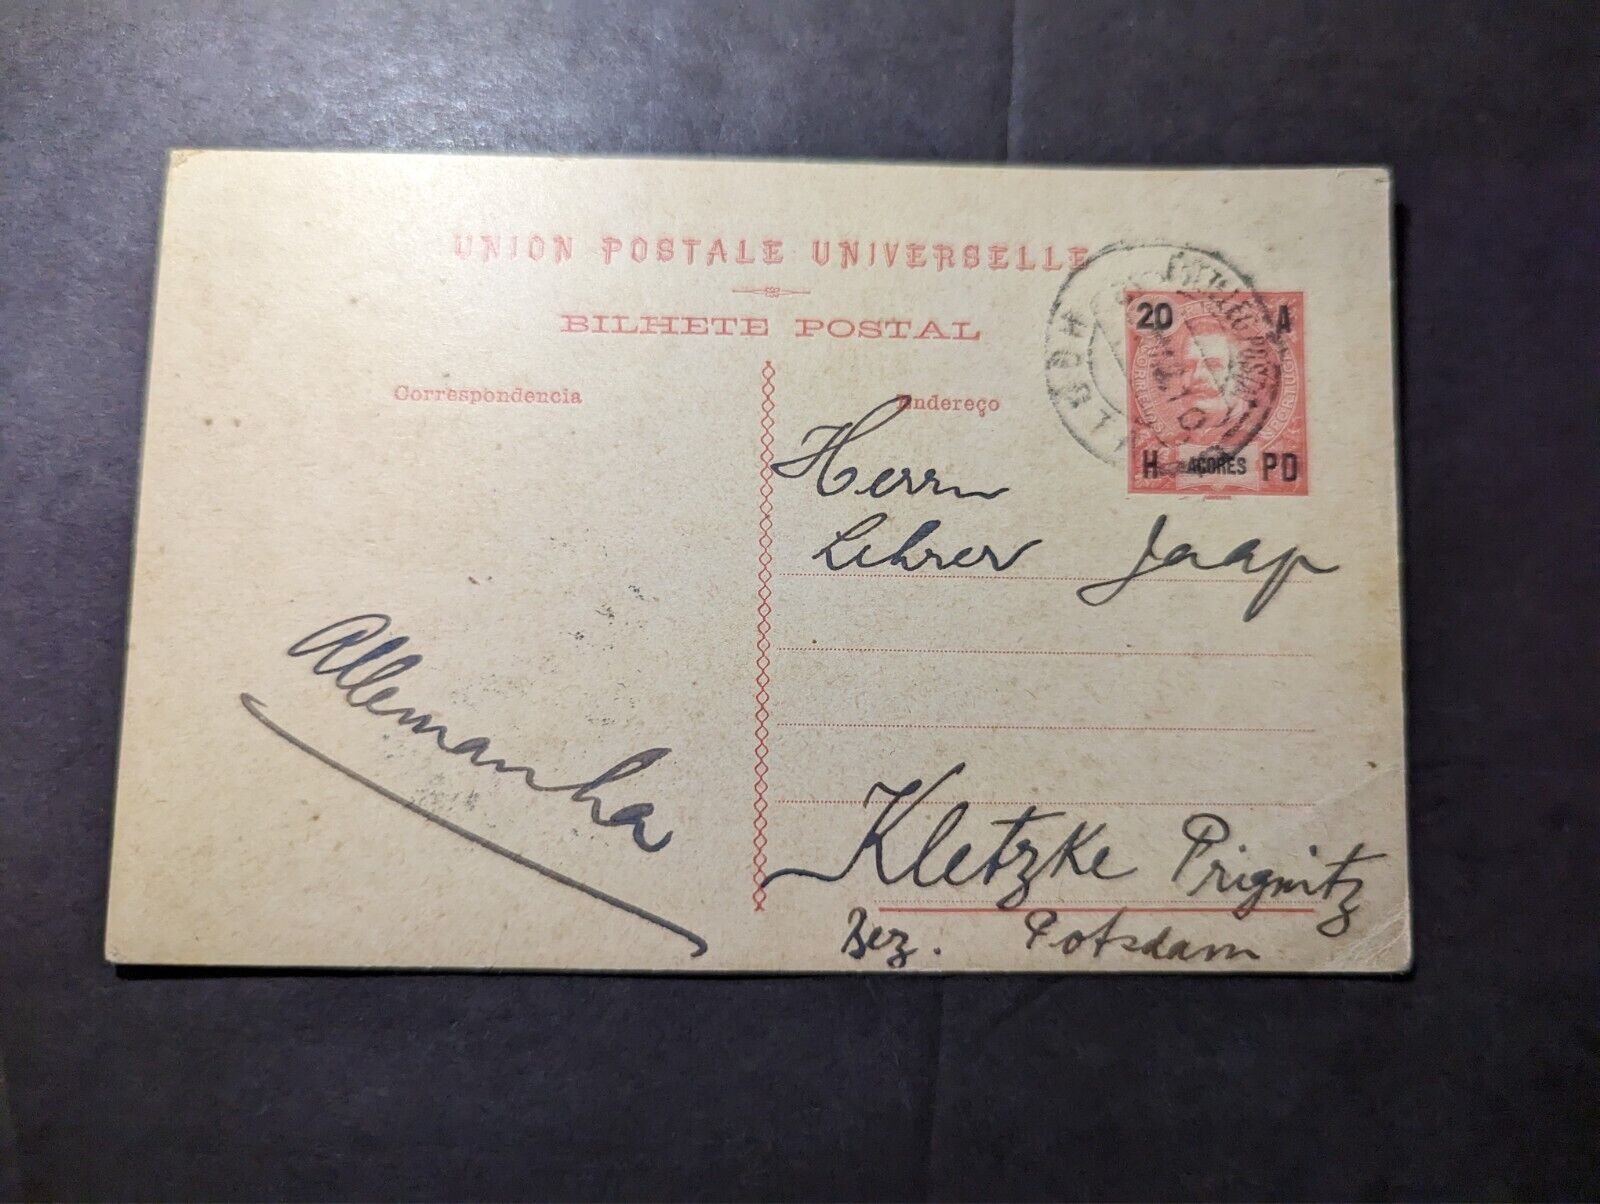 UNION POSTALE UNIVERSELLE
BILHETE POSTAL
Correspondencia
Endereço
20 A
H AÇORES PD
Herrn
Lehrer Jaap
Allemanha
Kletzke Prignitz
Bez. Potsdam